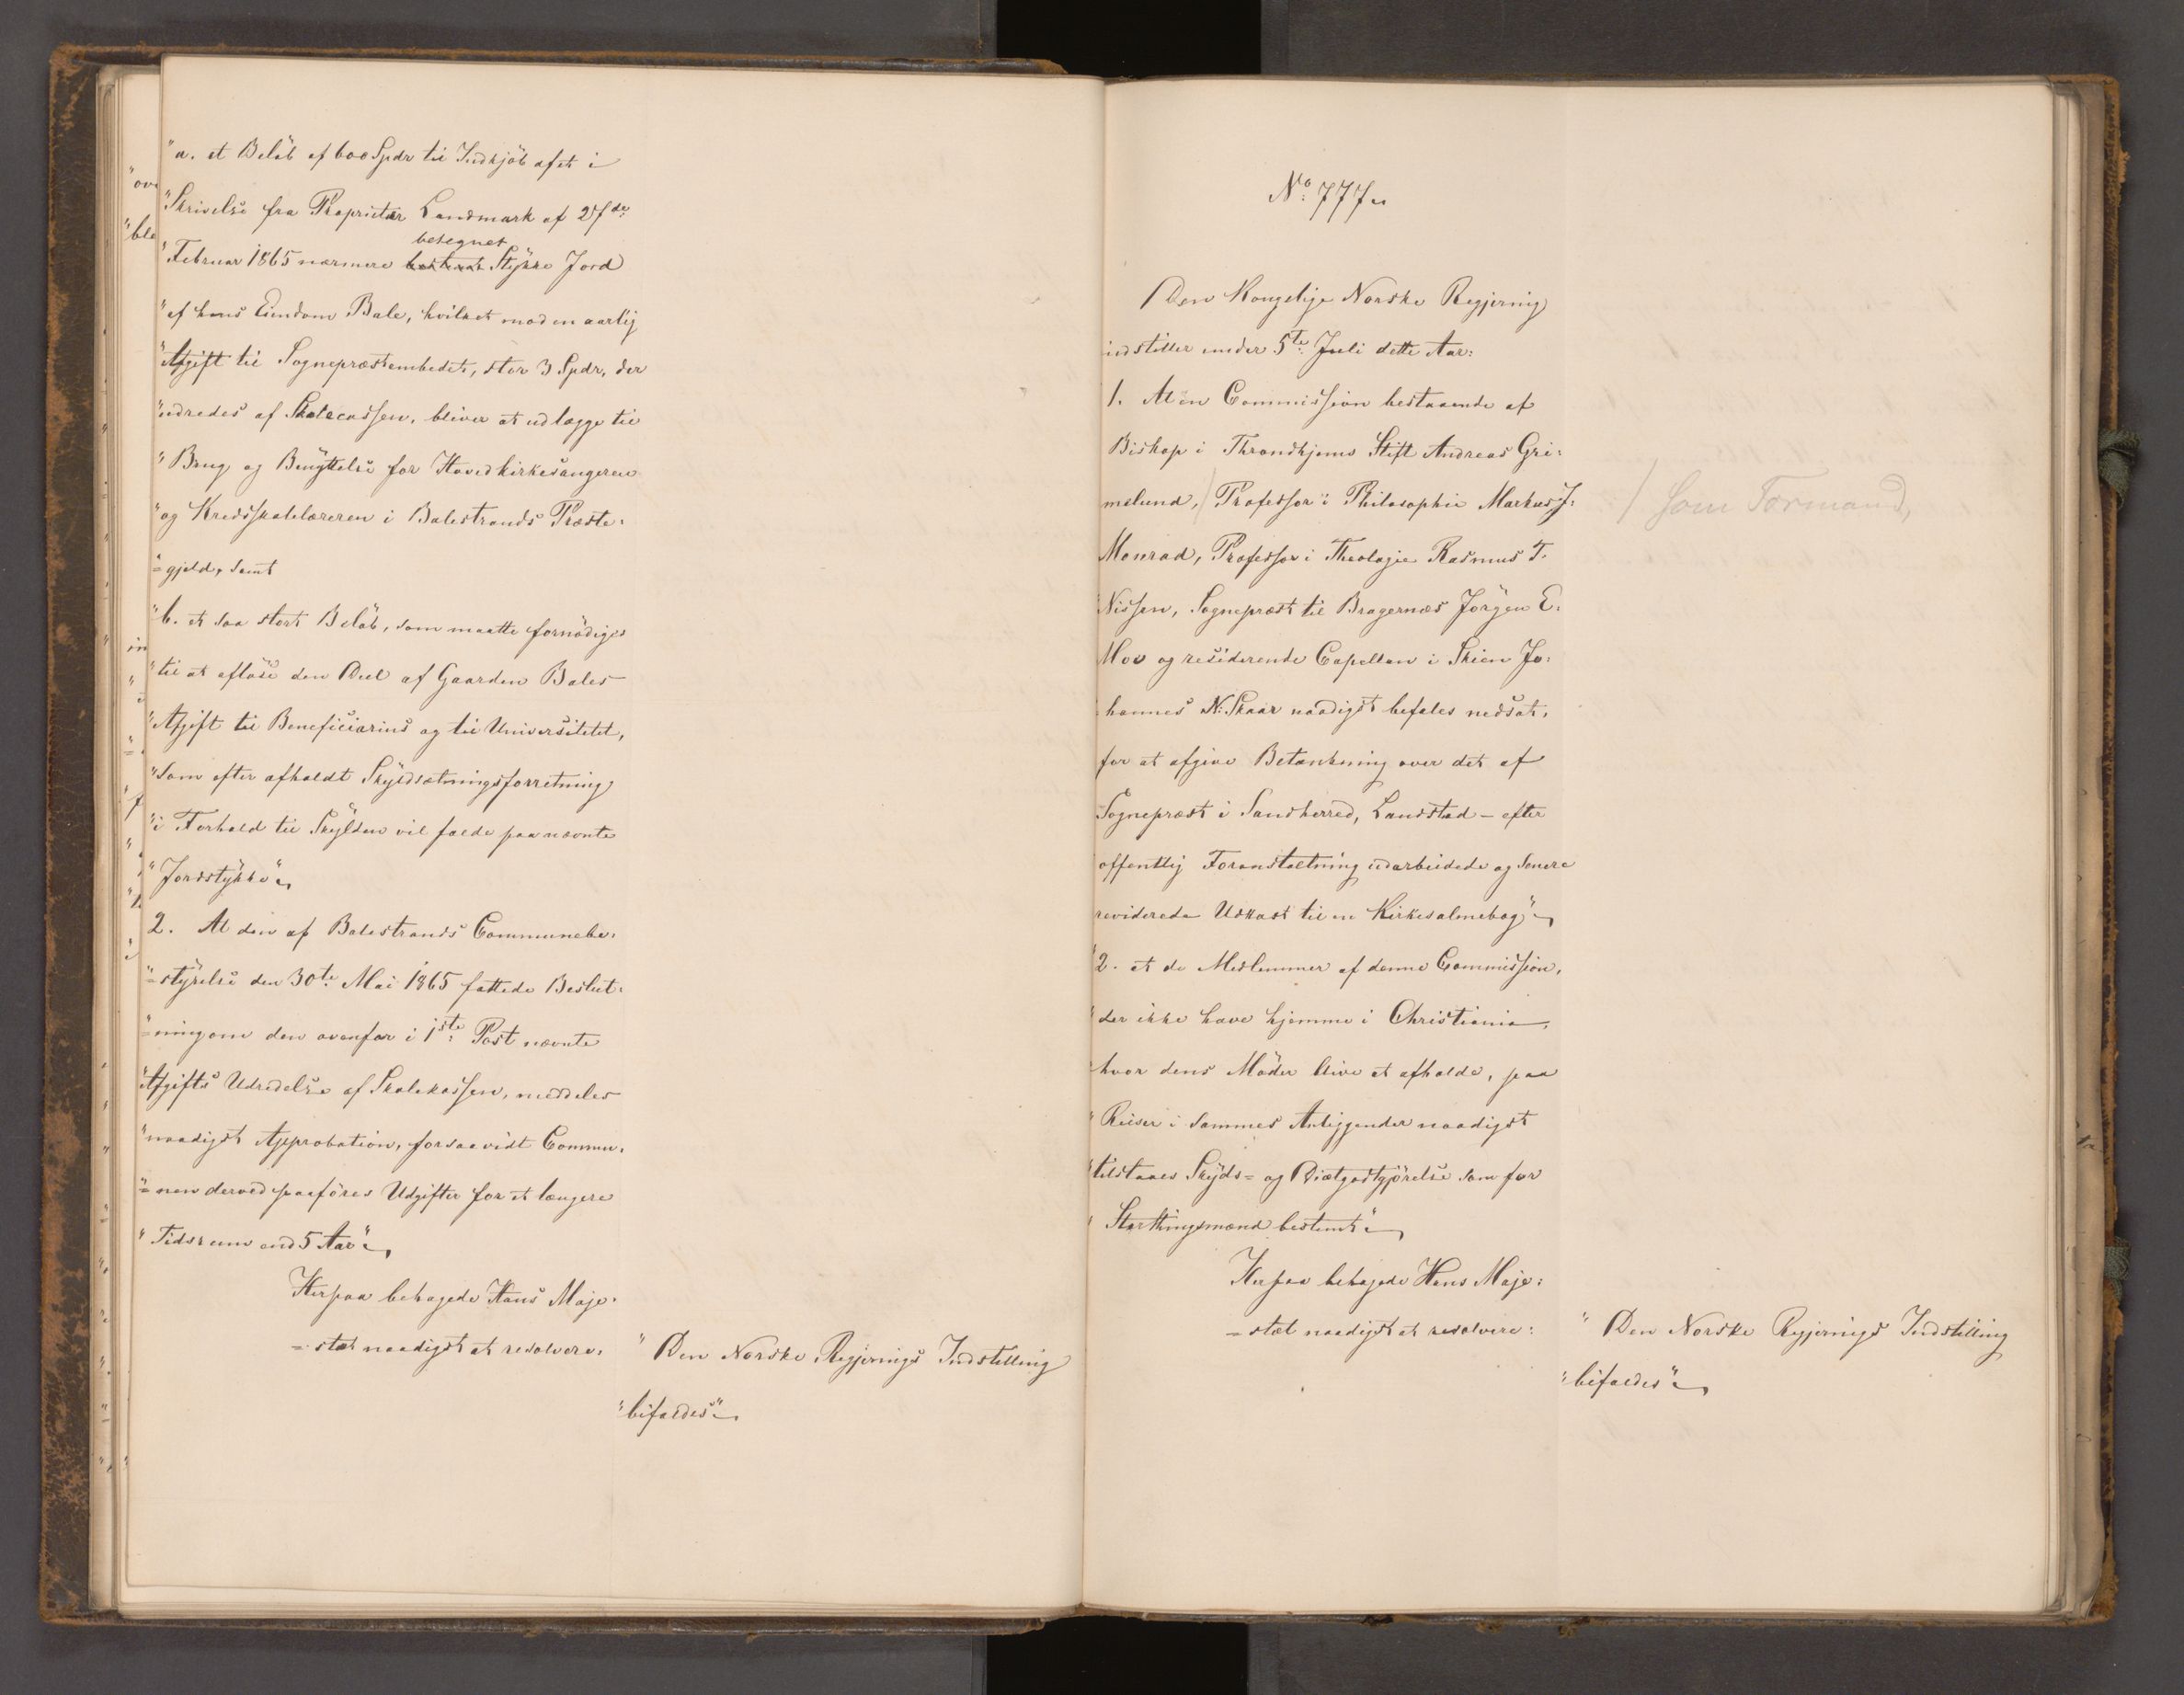 "a. et Beløb af 600 Spdr til Indkjøb af et i
"Skrivelse fra Proprietær Landmark af 27de
betegnet
"Februar 1865 nærmere bestemt Stykke Jord
"af hans Eiendom Bale, hvilket mod en aarlig
"Afgift til Sognepræstembedet, stor 3 Spdr, der
"udredes af Skolecassen, bliver at udlægge til
"Brug og Benyttelse for Hovedkirkesangeren
"og Kredsskolelæreren i Balestrands Præste-
"=gjeld, samt
"b. et saa stort Beløb, som maatte fornødiges
"til at afløse den Deel af Gaarden Bales
"Afgift til Beneficiarius og til Universitetet,
"som efter afholdt Skyldsætningsforretning
"i Forhold til Skylden vil falde paa nævnte
"Jordstykke"
2. At den af Balestrands Communebe-
"=styrelse den 30te Mai 1865 fattede Beslut-
"=ning om den ovenfor i 1ste Post nævnte
"Afgifts Udredelse af Skolekassen, meddeles
"naadigst Approbation, forsaavidt Commu-
"=nen derved paaføres Udgifter for et længere
"Tidsrum end 5 Aar"
Herpaa behagede Hans Maje-
=stæt naadigst at resolvere:
"Den Norske Regjerings Indstilling
"bifaldes"
No 777
Den Kongelige Norske Regjering
indstiller under 5te Juli dette Aar:
1. At en Commission bestaaende af
Biskop i Throndhjems Stift Andreas Gri-
melund, / Professor i Philosophie Markus J.
/ som Formand,
Monrad, Professor i Theologie Rasmus T.
Nissen, Sognepræst til Bragernes Jørgen E.
Moe og residerende Capellan i Skien Jo-
hannes N. Skaar naadigst befales nedsat,
for at afgive Betænkning over det af
Sognepræst i Sandherred, Landstad - efter
offentlig Foranstaltning udarbeidede og senere
reviderede Udkast til en Kirkesalmebog"
"2. at de Medlemmer af denne Commission,
"der ikke have hjemme i Christiania,
hvor dens Møder blive at afholde, paa
"Reiser i sammes Anliggender naadigst
"tilstaaes Skyds- og Diætgodtgjørelse som for
"Storthingsmænd bestemt"
Herpaa behagede Hans Maje-
=stæt naadigst at resolvere:
"Den Norske Regjerings Indstilling
"bifaldes"